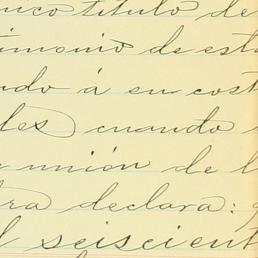 unco titulo de
timonio de est
ndo á su cost
les cuando
a unión de l
ra declara:
l seiscient